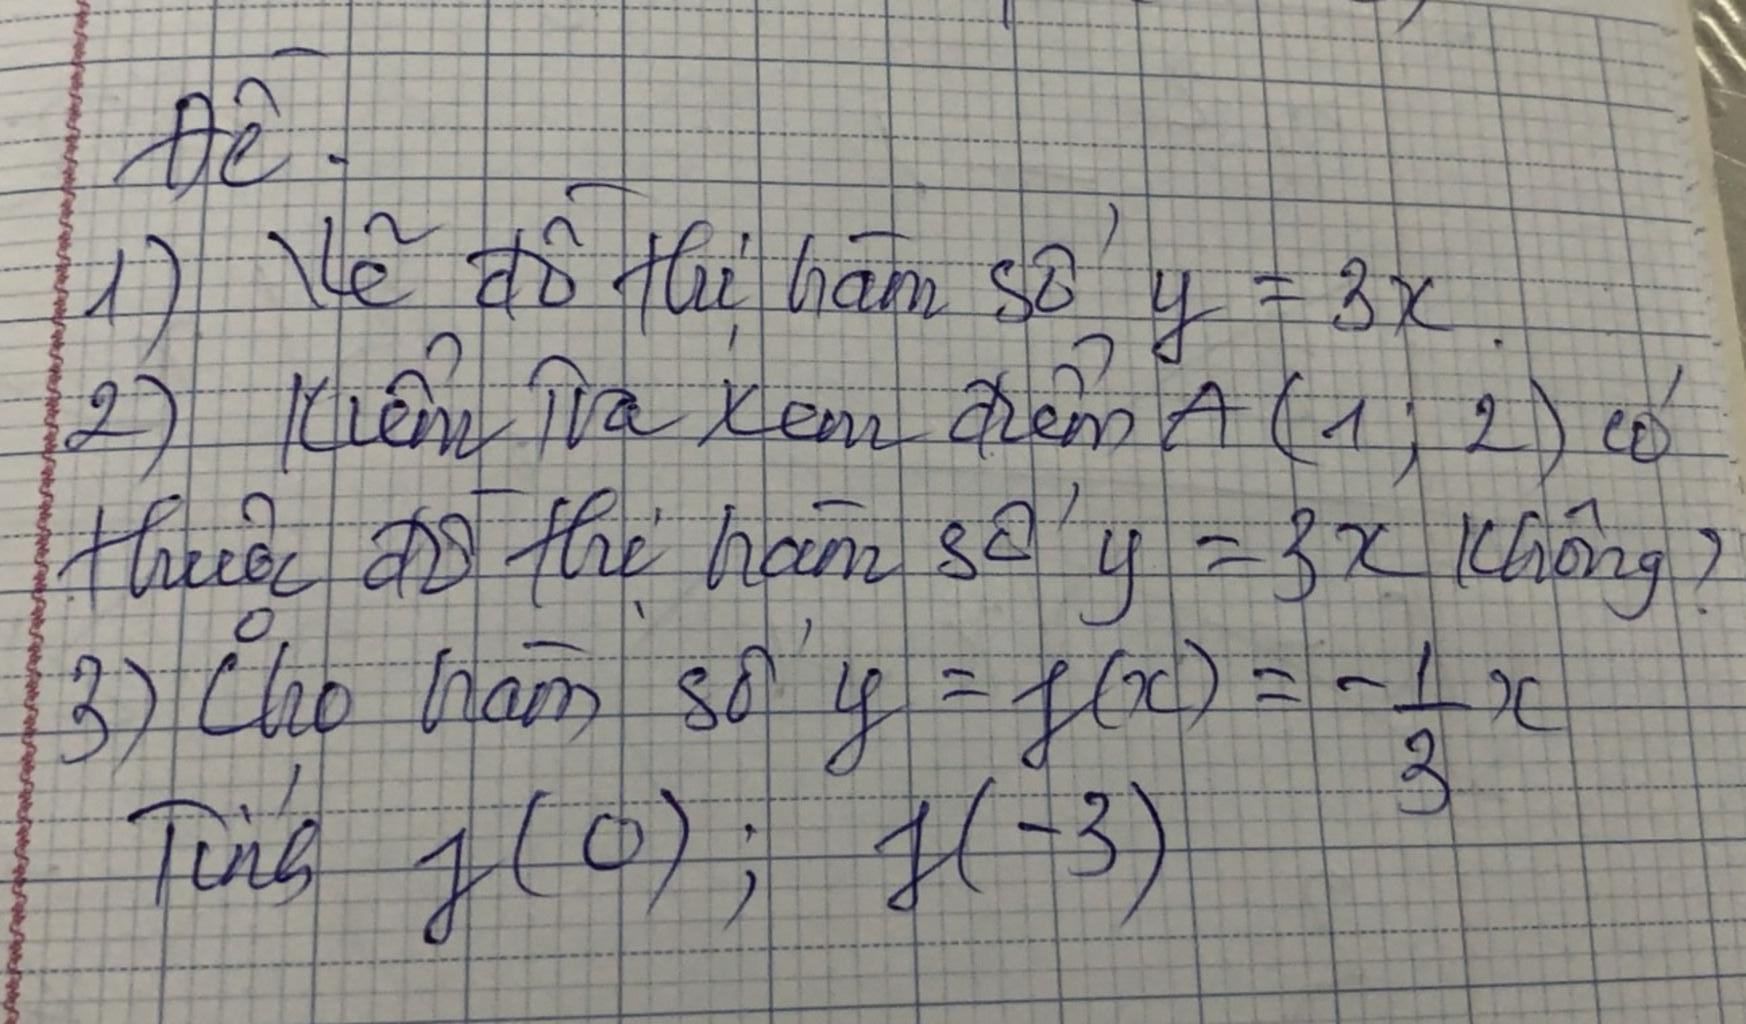 Đề.
1) Vẽ đồ thị hàm số y = 3x.
2) Kiểm tra xem điểm A(1; 2) có
thuộc đồ thị hàm số y = 3x không?
3) Cho hàm số y = f(x) = -1/3 x
Tính f(0); f(-3)